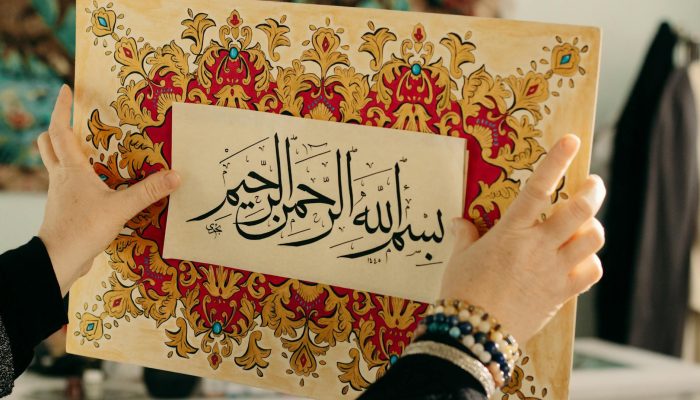 بِسْمِ اللهِ الرَّحْمٰنِ الرَّحِيْمِ
١٤٤٥